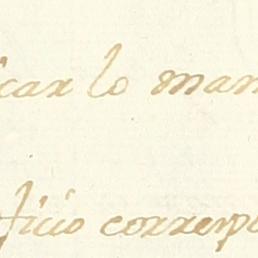 icar lo man
ficio corresp